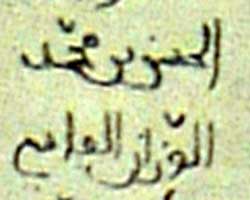 الحسن بن محمد
الوزان الفاسي